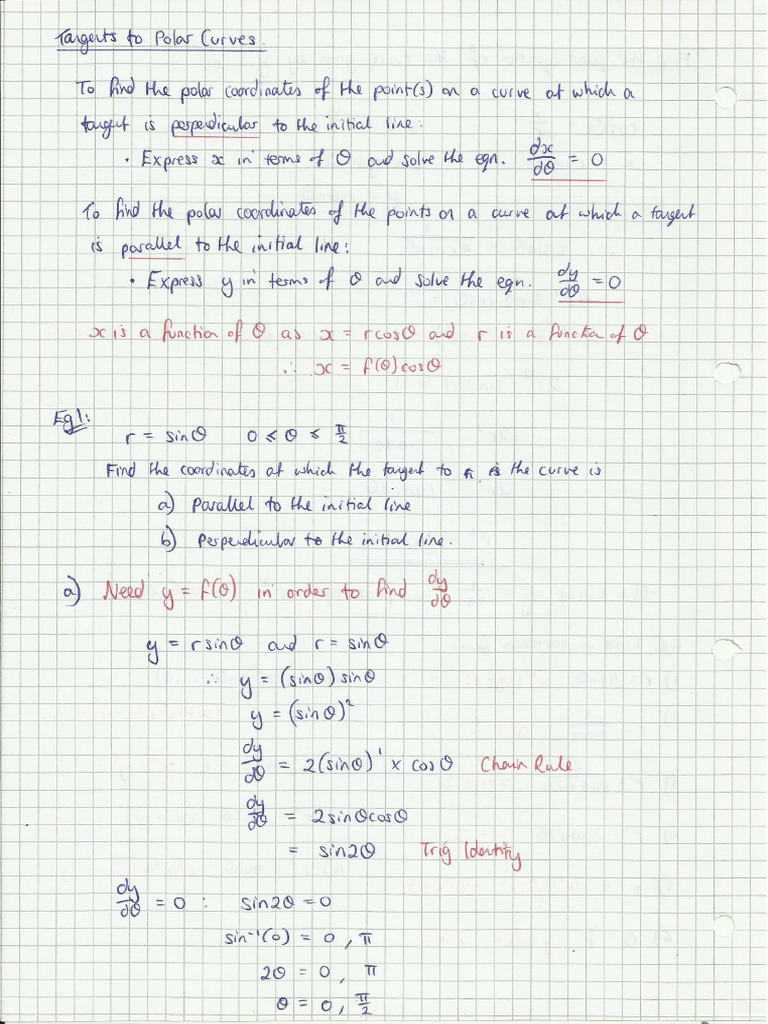 Tangents to Polar Curves.
To find the polar coordinates of the point(s) on a curve at which a
tangent is perpendicular to the initial line:
• Express x in terms of θ and solve the eqn. dx/dθ = 0
To find the polar coordinates of the points on a curve at which a tangent
is parallel to the initial line:
• Express y in terms of θ and solve the eqn. dy/dθ = 0
x is a function of θ as x = rcosθ and r is a function of θ
∴ x = f(θ)cosθ
Eg1:
r = sinθ 0 ⩽ θ ⩽ π/2
Find the coordinates at which the tangent to the curve is
a) Parallel to the initial line
b) Perpendicular to the initial line.
a) Need y = f(θ) in order to find dy/dθ
y = rsinθ and r = sinθ
∴ y = (sinθ)sinθ
y = (sinθ)²
dy/dθ = 2(sinθ)¹ × cosθ Chain Rule
dy/dθ = 2sinθcosθ
= sin2θ Trig Identity
dy/dθ = 0 : sin2θ = 0
sin⁻¹(0) = 0, π
2θ = 0, π
θ = 0, π/2